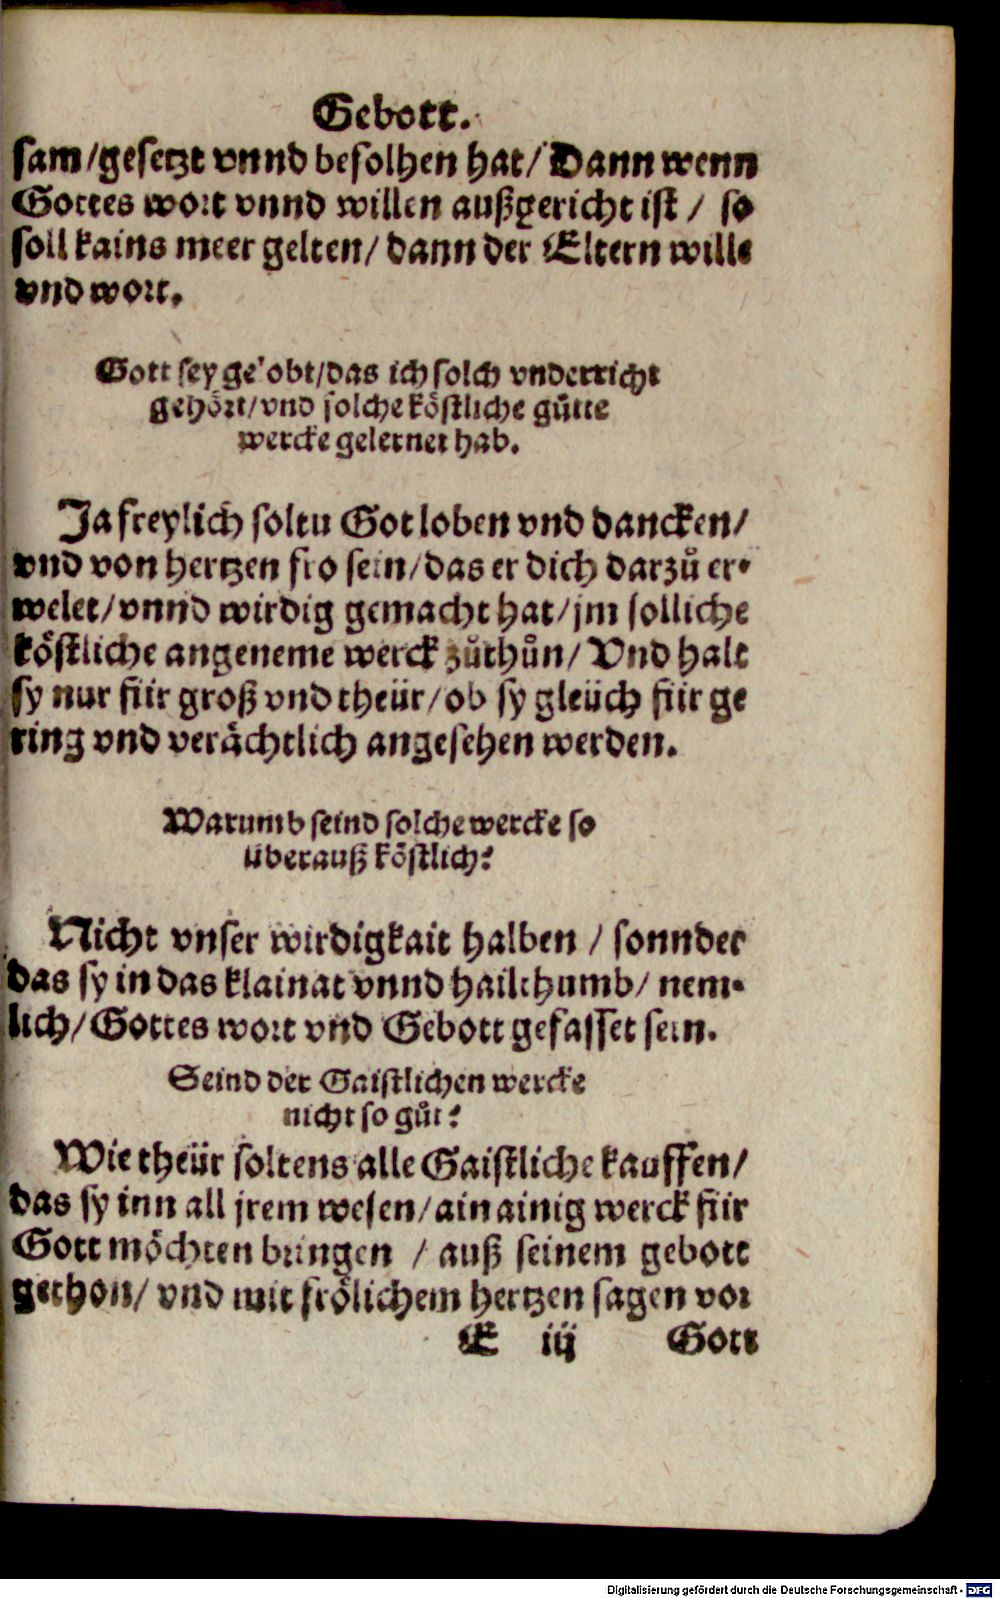 Gebott.
sam/gesetzt vnnd befolhen hat/ Dann wenn
Gottes wort vnnd willen außgericht ist / so
soll kains meer gelten/ dann der Eltern wille
vnd wort.
Gott sey gelobt/das ich solch vnderricht
gehört/vnd solche köstliche gůtte
wercke gelernet hab.
Ja freylich soltu Got loben vnd dancken/
vnd von hertzen fro sein/das er dich darzů er-
welet/vnnd wirdig gemacht hat/jm solliche
köstliche angeneme werck zůthůn/ Vnd halt
sy nur für groß vnd theür/ob sy gleüch für ge
ring vnd verächtlich angesehen werden.
Warumb seind solche wercke so
überauß köstlich?
Nicht vnser wirdigkait halben / sonnder
das sy in das klainat vnnd hailthumb/ nem-
lich/Gottes wort vnd Gebott gefasset sein.
Seind der Gaistlichen wercke
nicht so gůt?
Wie theür soltens alle Gaistliche kauffen/
das sy inn all jrem wesen/ain ainig werck für
Gott möchten bringen / auß seinem gebott
gethon/ vnd mit frölichem hertzen sagen vor
E iij Gott
Digitalisierung gefördert durch die Deutsche Forschungsgemeinschaft - DFG